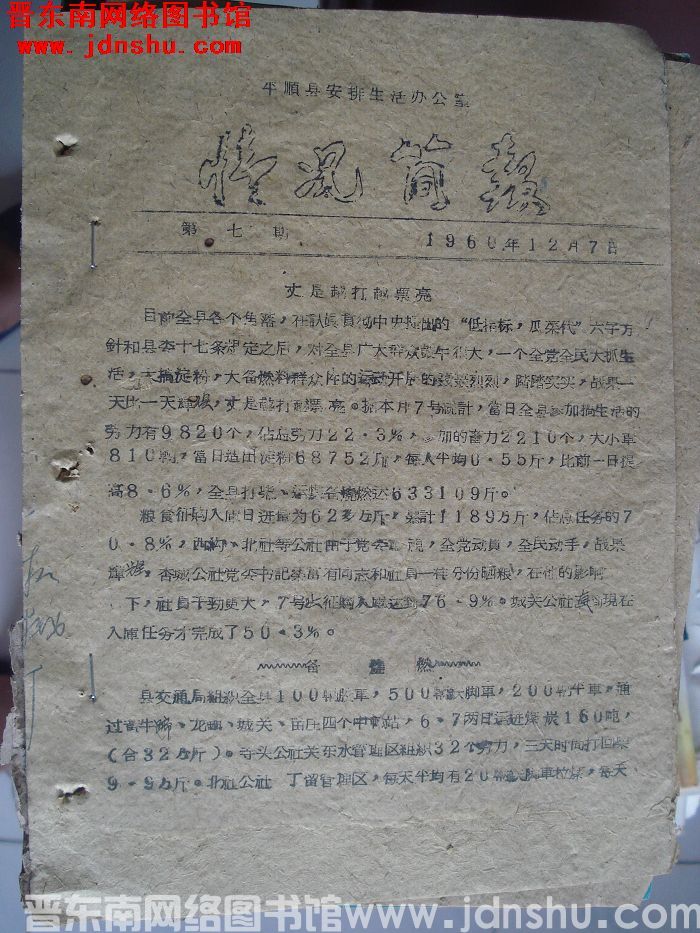 晋东南网络图书馆
www.jdnshu.com
平順县安排生活办公室
情况简报
第七期 1960年12月7日
丈是越打越票亮
目前全县各个角落，在认眞貫彻中央提出的“低指标，瓜菜代”六字方
針和县委十七条规定之后，对全县广大群众鼓午很大，一个全党全民大抓生
活，大搞淀粉，大备燃料群众性的运动开展的轰轰烈烈，踏踏实实，战果一
天比一天輝煌，丈是越打越票亮。据本月7号統計，當日全县参加搞生活的
劳力有9820个，佔总劳力22.3%，参加的畜力2210个，大小車
810輛，當日造出淀粉68752斤，每人平均0.55斤，比前一日提
高8.6%，全县打柴、运煤备燒燃达633109斤。
粮食征购入庫日进量为62多万斤，累計1189万斤，佔总任务的7
0.8%，西沟、北社等公社由于党委重視，全党动員，全民动手，战果
輝煌。杏城公社党委书記 富有同志和社員一样分份晒粮，在他的影响
下，社員干劲更大，7号此征购入庫达到76.9%。城关公社 到現在
入庫任务才完成了50.3%。
备燒燃
县交通局組织全县100輛胶車，500輛 脚車，200輛牛車，通
过 牛 、龙 、城关、苗庄四个中 站，6、7两日运进煤炭160吨，
（合32万斤）。寺头公社关东水管理区組织32个劳力，三天时间打回柴
9.9万斤。北社公社 丁留管理区，每天平均有20輛 脚車拉煤，每天
晋东南网络图书馆 www.jdnshu.com